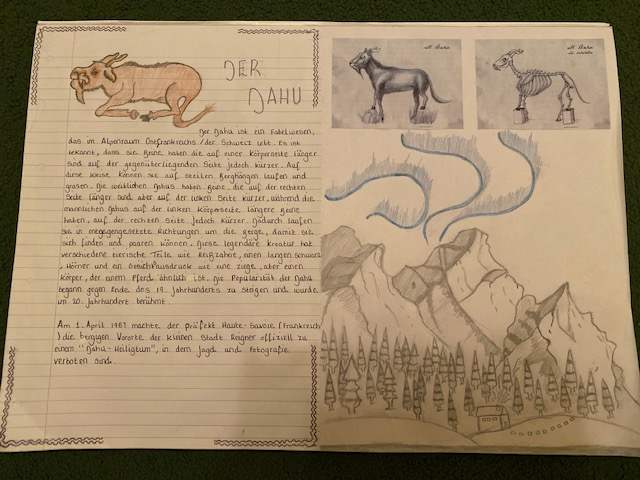 DER
DAHU
Der Dahu ist ein Fabelwesen,
das im Alpenraum Ostfrankreichs / der Schweiz lebt. Es ist
bekannt, dass sie Beine haben die auf einer Körperseite länger
sind auf der gegenüberliegenden Seite jedoch kürzer. Auf
diese Weise können sie auf steilen Berghängen laufen und
grasen. Die weiblichen Dahus haben Beine, die auf der rechten
Seite länger sind aber auf der linken Seite kürzer, während die
männlichen Dahus auf der linken Körperseite längere Beine
haben, auf der rechten Seite jedoch kürzer. Dadurch laufen
sie in entgegengesetzte Richtungen um die Berge, damit sie
sich finden und paaren können. Diese legendäre Kreatur hat
verschiedene tierische Teile wie Reißzähne, einen langen Schwanz,
Hörner und ein Gesichtsausdruck wie eine Ziege, aber einen
Körper, der einem Pferd ähnlich ist. Die Popularität der Dahu
begann gegen Ende des 19. Jahrhunderts zu steigen und wurde
im 20. Jahrhundert berühmt.
Am 1. April 1967 machte der präfekt Haute-Savoie (Frankreich
) die bergigen Vororte der kleinen Stadt Reigner offiziell zu
einem "Dahu-Heiligtum", in dem Jagd und Fotografie
verboten sind.